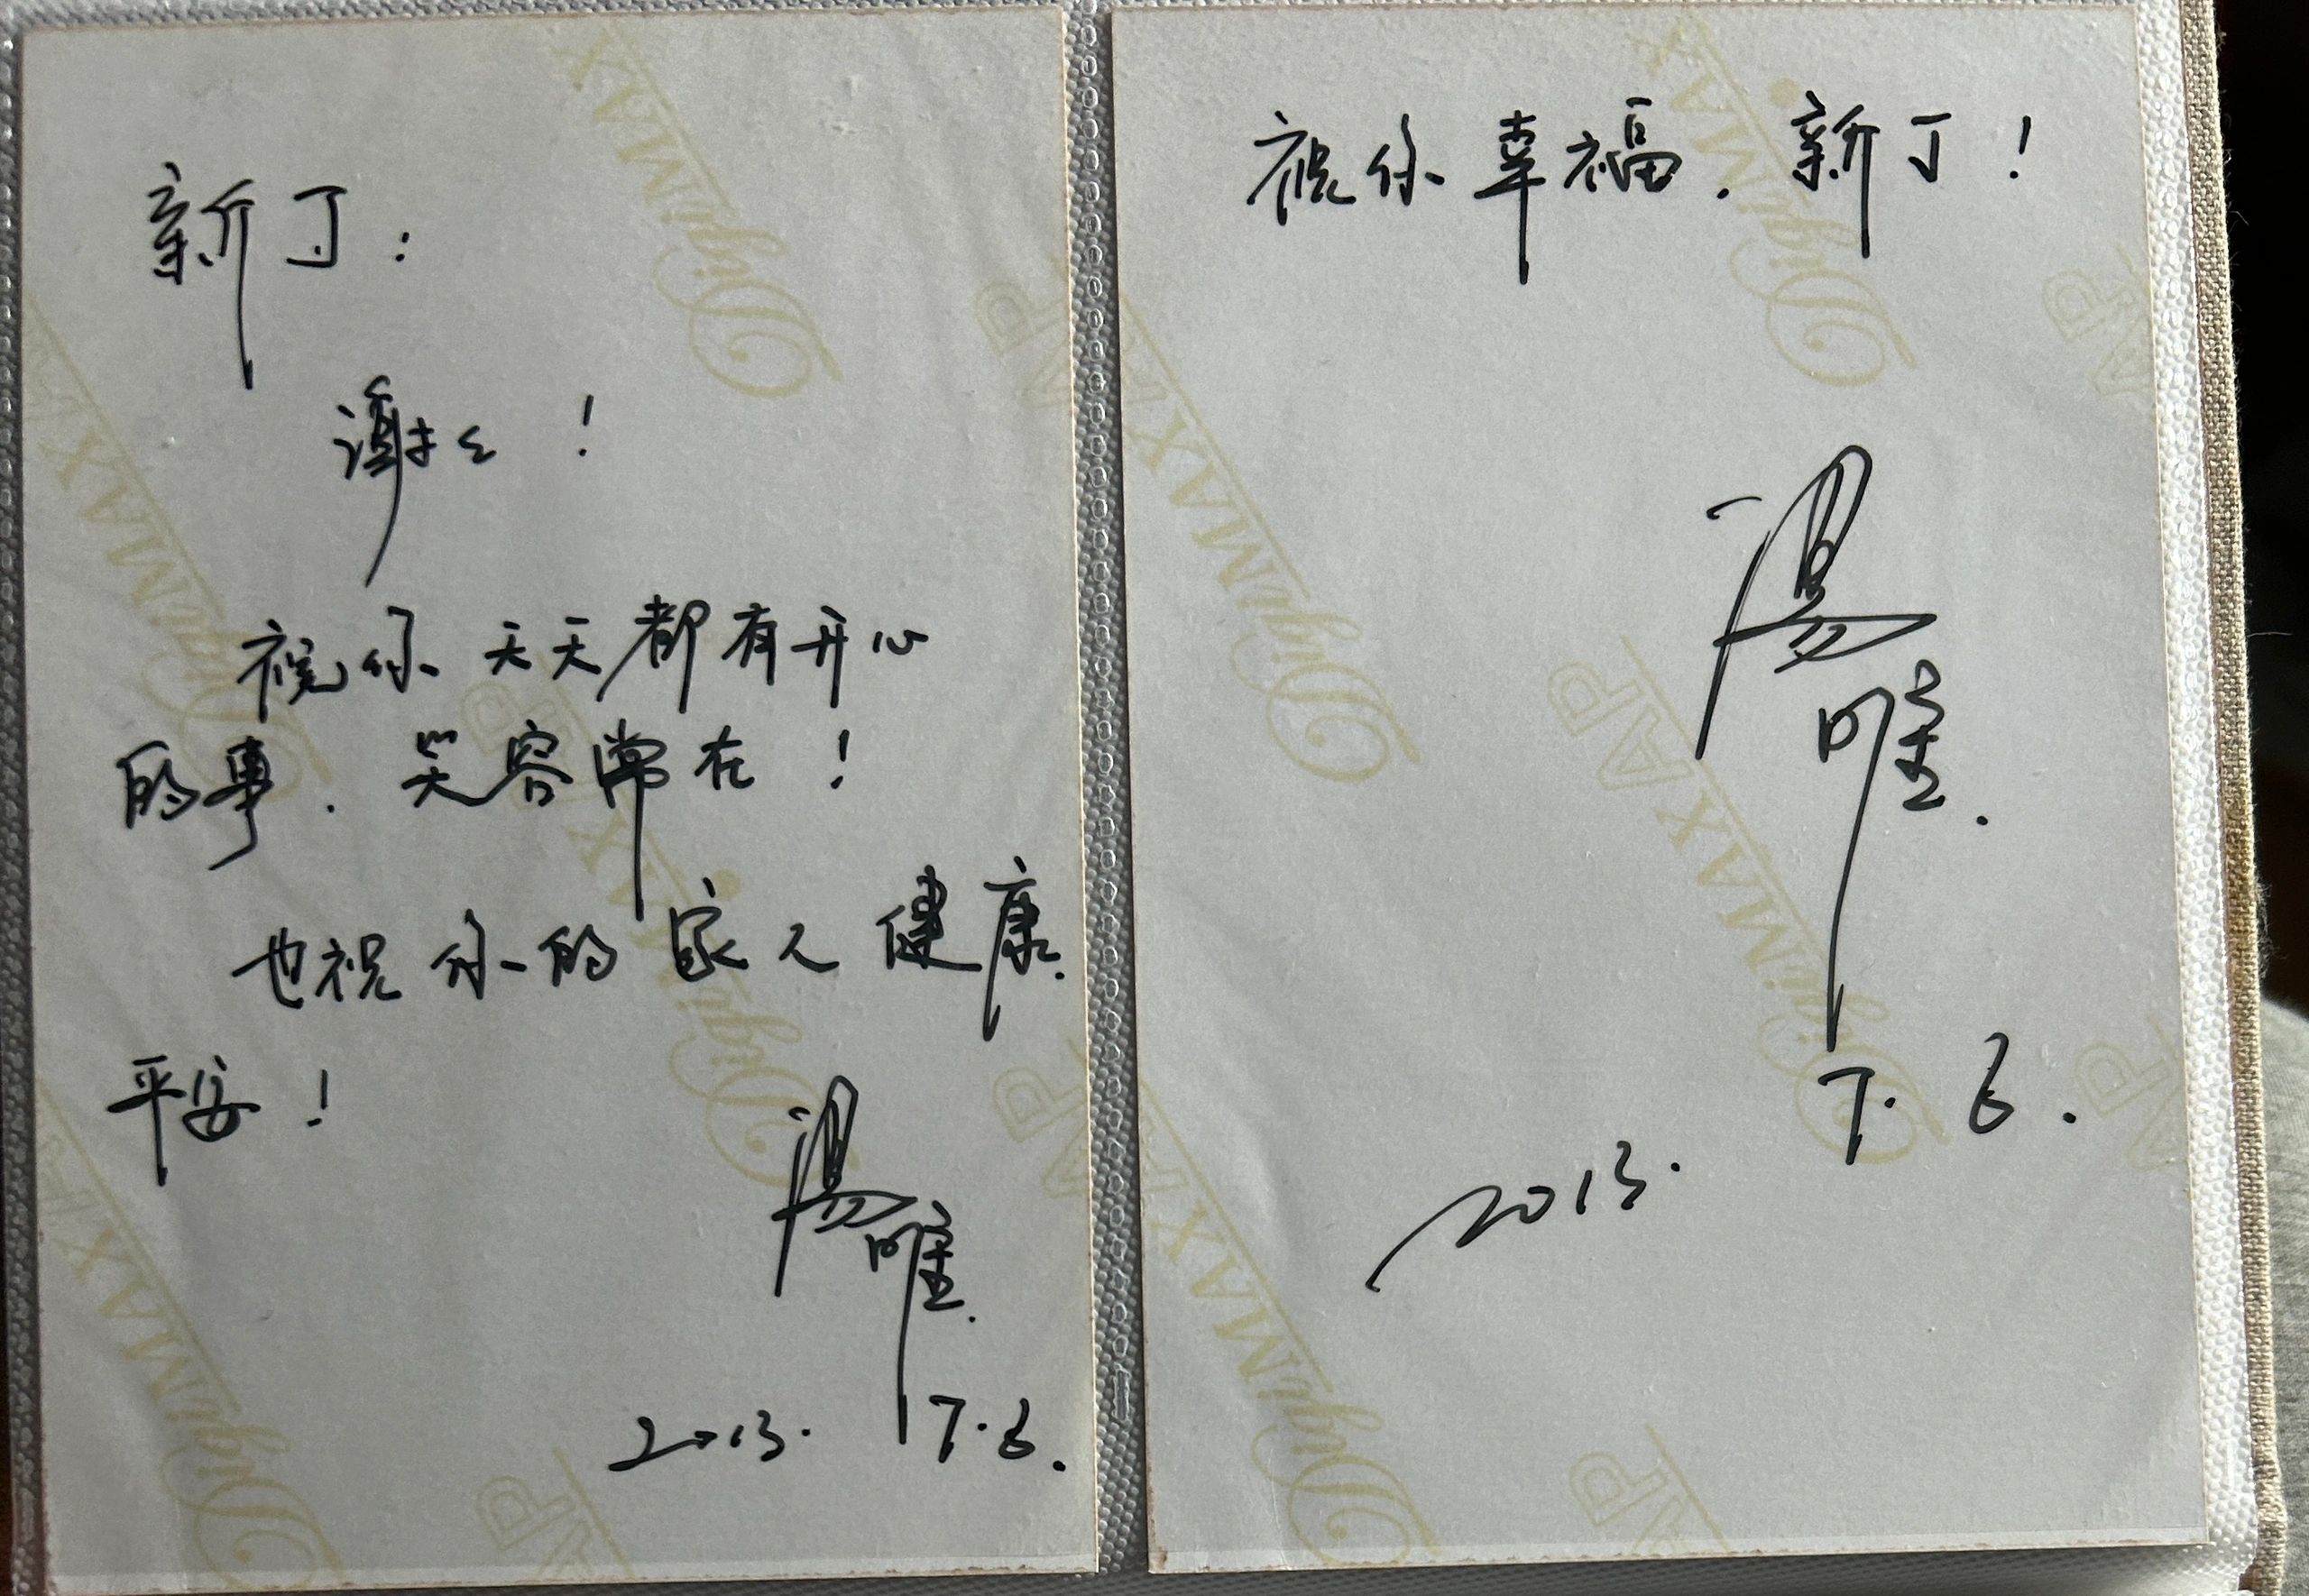 新丁:
谢谢!
祝你天天都有开心
的事.笑容常在!
也祝你的家人健康.
平安!
湯唯.
2013. 7.6.
祝你幸福.新丁!
湯
唯.
7. 6.
2013.
DigiMAX
AP